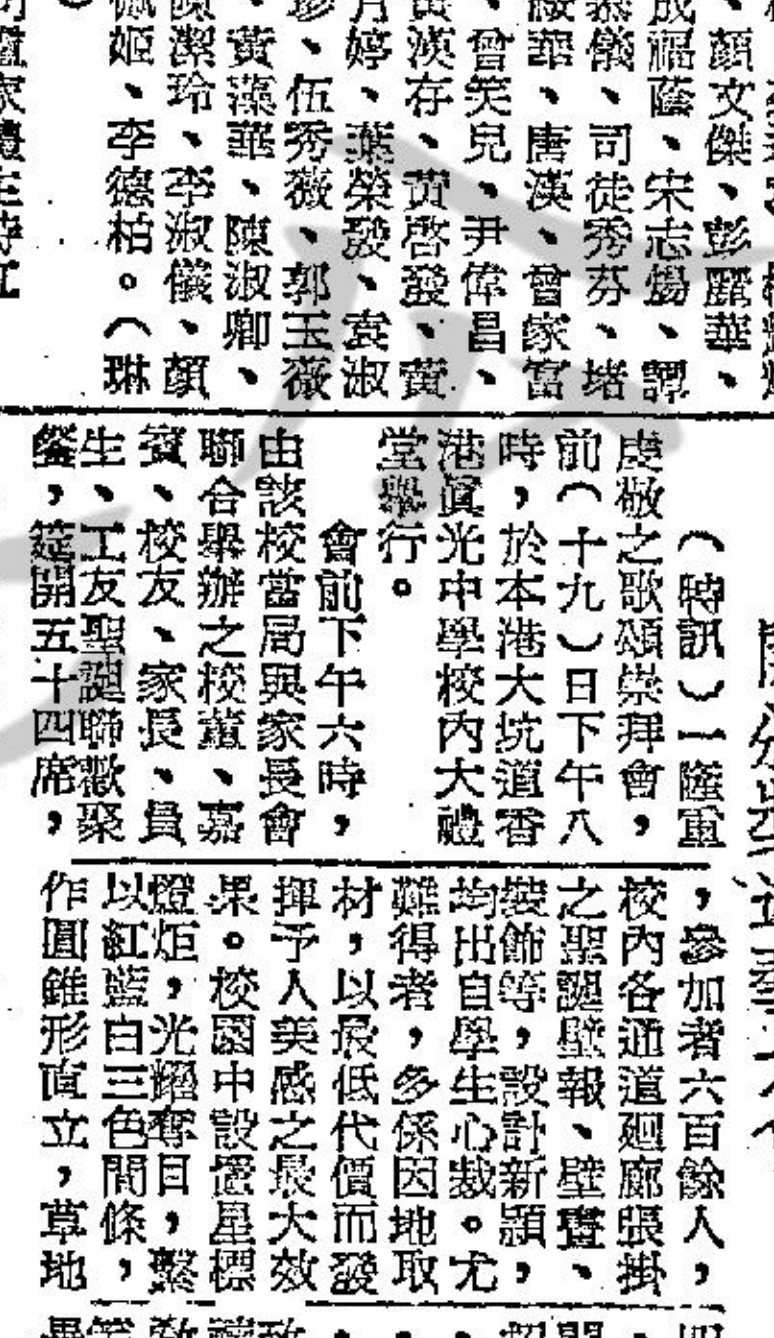 、顏文傑、彭麗華、
成福蔭、宋志煬、譚
慕儀、司徒秀芬、堵
華、唐漢、曾家富
、曾笑兒、尹偉昌、
黃渶存、黃啓發、黃
月婷、葉榮發、袁淑
珍、伍秀薇、郭玉薇
、黃藻華、陳淑卿、
陳潔玲、李淑儀、顏
佩姬、李德柏。（琳
（特訊）一隆重
虔敬之歌頌崇拜會，
前（十九）日下午八
時，於本港大坑道香
港眞光中學校內大禮
堂舉行。
會前下午六時，
由該校當局與家長會
聯合舉辦之校董、嘉
賓、校友、家長、員
生、工友聖誕聯歡聚
餐，筵開五十四席，
，參加者六百餘人，
校內各通道廻廊張掛
之聖誕壁報、壁畫、
裝飾等，設計新頴，
均出自學生心裁。尤
難得者，多係因地取
材，以最低代價而發
揮予人美感之最大效
果。校園中設置星標
燈炬，光耀奪目，繫
以紅藍白三色間條，
作圓錐形直立，草地